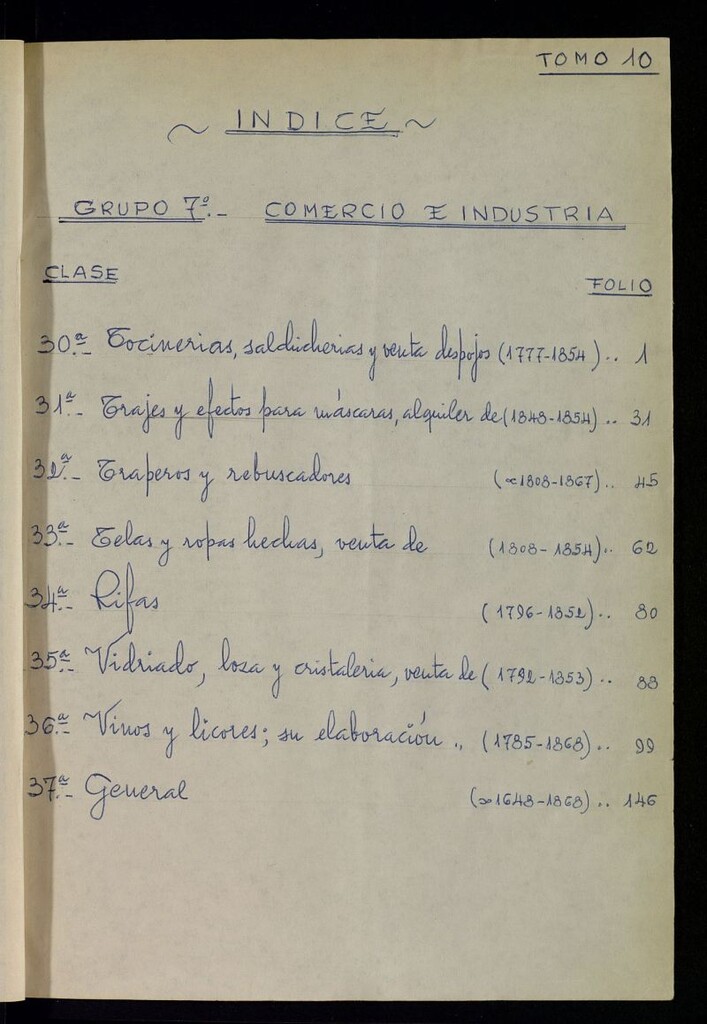 TOMO 10
~ INDICE ~
GRUPO 7º.- COMERCIO E INDUSTRIA
CLASE FOLIO
30ª.- Tocinerias, salchicherias y venta despojos (1777-1854) .. 1
31ª.- Trajes y efectos para máscaras, alquiler de (1848-1854) .. 31
32ª.- Traperos y rebuscadores (∝1808-1867) .. 45
33ª.- Telas y ropas hechas, venta de (1808-1854) .. 62
34ª.- Rifas (1796-1852) .. 80
35ª.- Vidriado, loza y cristaleria, venta de (1792-1853) .. 88
36ª.- Vinos y licores; su elaboración .. (1785-1868) .. 99
37ª.- General (∝1648-1868) .. 146